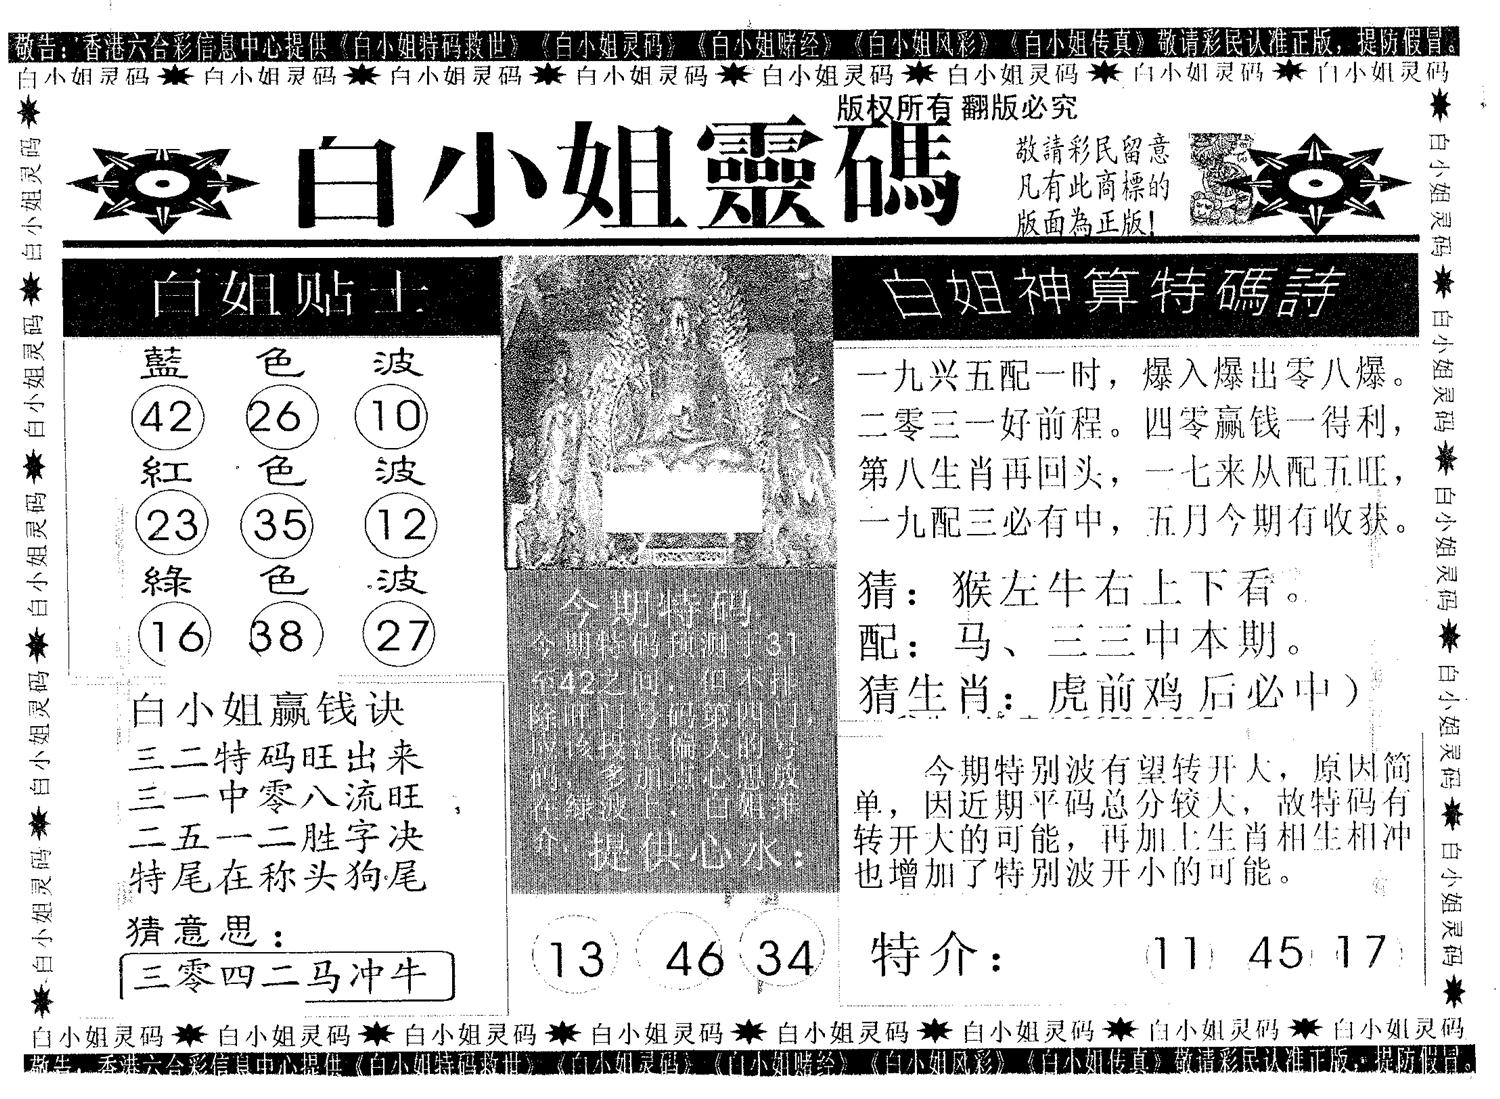 敬告：香港六合彩信息中心提供《白小姐特码救世》《白小姐灵码》《白小姐赌经》《白小姐风彩》《白小姐传真》敬请彩民认准正版，提防假冒。
白小姐灵码 白小姐灵码 白小姐灵码 白小姐灵码 白小姐灵码 白小姐灵码 白小姐灵码 白小姐灵码
版权所有 翻版必究
白小姐靈碼
敬請彩民留意
凡有此商標的
版面為正版！
白小姐灵码 白小姐灵码 白小姐灵码 白小姐灵码 白小姐灵码
白姐贴士
藍色波
42 26 10
紅色波
23 35 12
綠色波
16 38 27
白小姐赢钱诀
三二特码旺出来
三一中零八流旺
二五一二胜字决
特尾在称头狗尾
猜意思：
三零四二马冲牛
今期特码
今期特码预测于31
至42之间，但不排
除旺门号码第四门，
应该投注偏大的号
码，多加点心思放
在绿波上，白姐推
介
提供心水：
13 46 34
白姐神算特碼詩
一九兴五配一时，爆入爆出零八爆。
二零三一好前程。四零赢钱一得利，
第八生肖再回头，一七来从配五旺，
一九配三必有中，五月今期有收获。
猜：猴左牛右上下看。
配：马、三三中本期。
猜生肖：虎前鸡后必中）
今期特别波有望转开大，原因简
单，因近期平码总分较大，故特码有
转开大的可能，再加上生肖相生相冲
也增加了特别波开小的可能。
特介： 11 45 17
白小姐灵码 白小姐灵码 白小姐灵码 白小姐灵码 白小姐灵码
白小姐灵码 白小姐灵码 白小姐灵码 白小姐灵码 白小姐灵码 白小姐灵码 白小姐灵码 白小姐灵码
敬告：香港六合彩信息中心提供《白小姐特码救世》《白小姐灵码》《白小姐赌经》《白小姐风彩》《白小姐传真》敬请彩民认准正版，提防假冒。